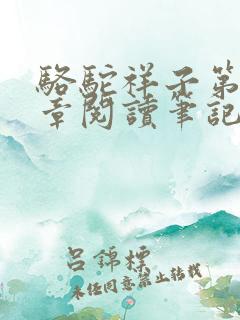 駱駝祥子第
章閱讀筆記
呂錦標
未經同意禁止轉載